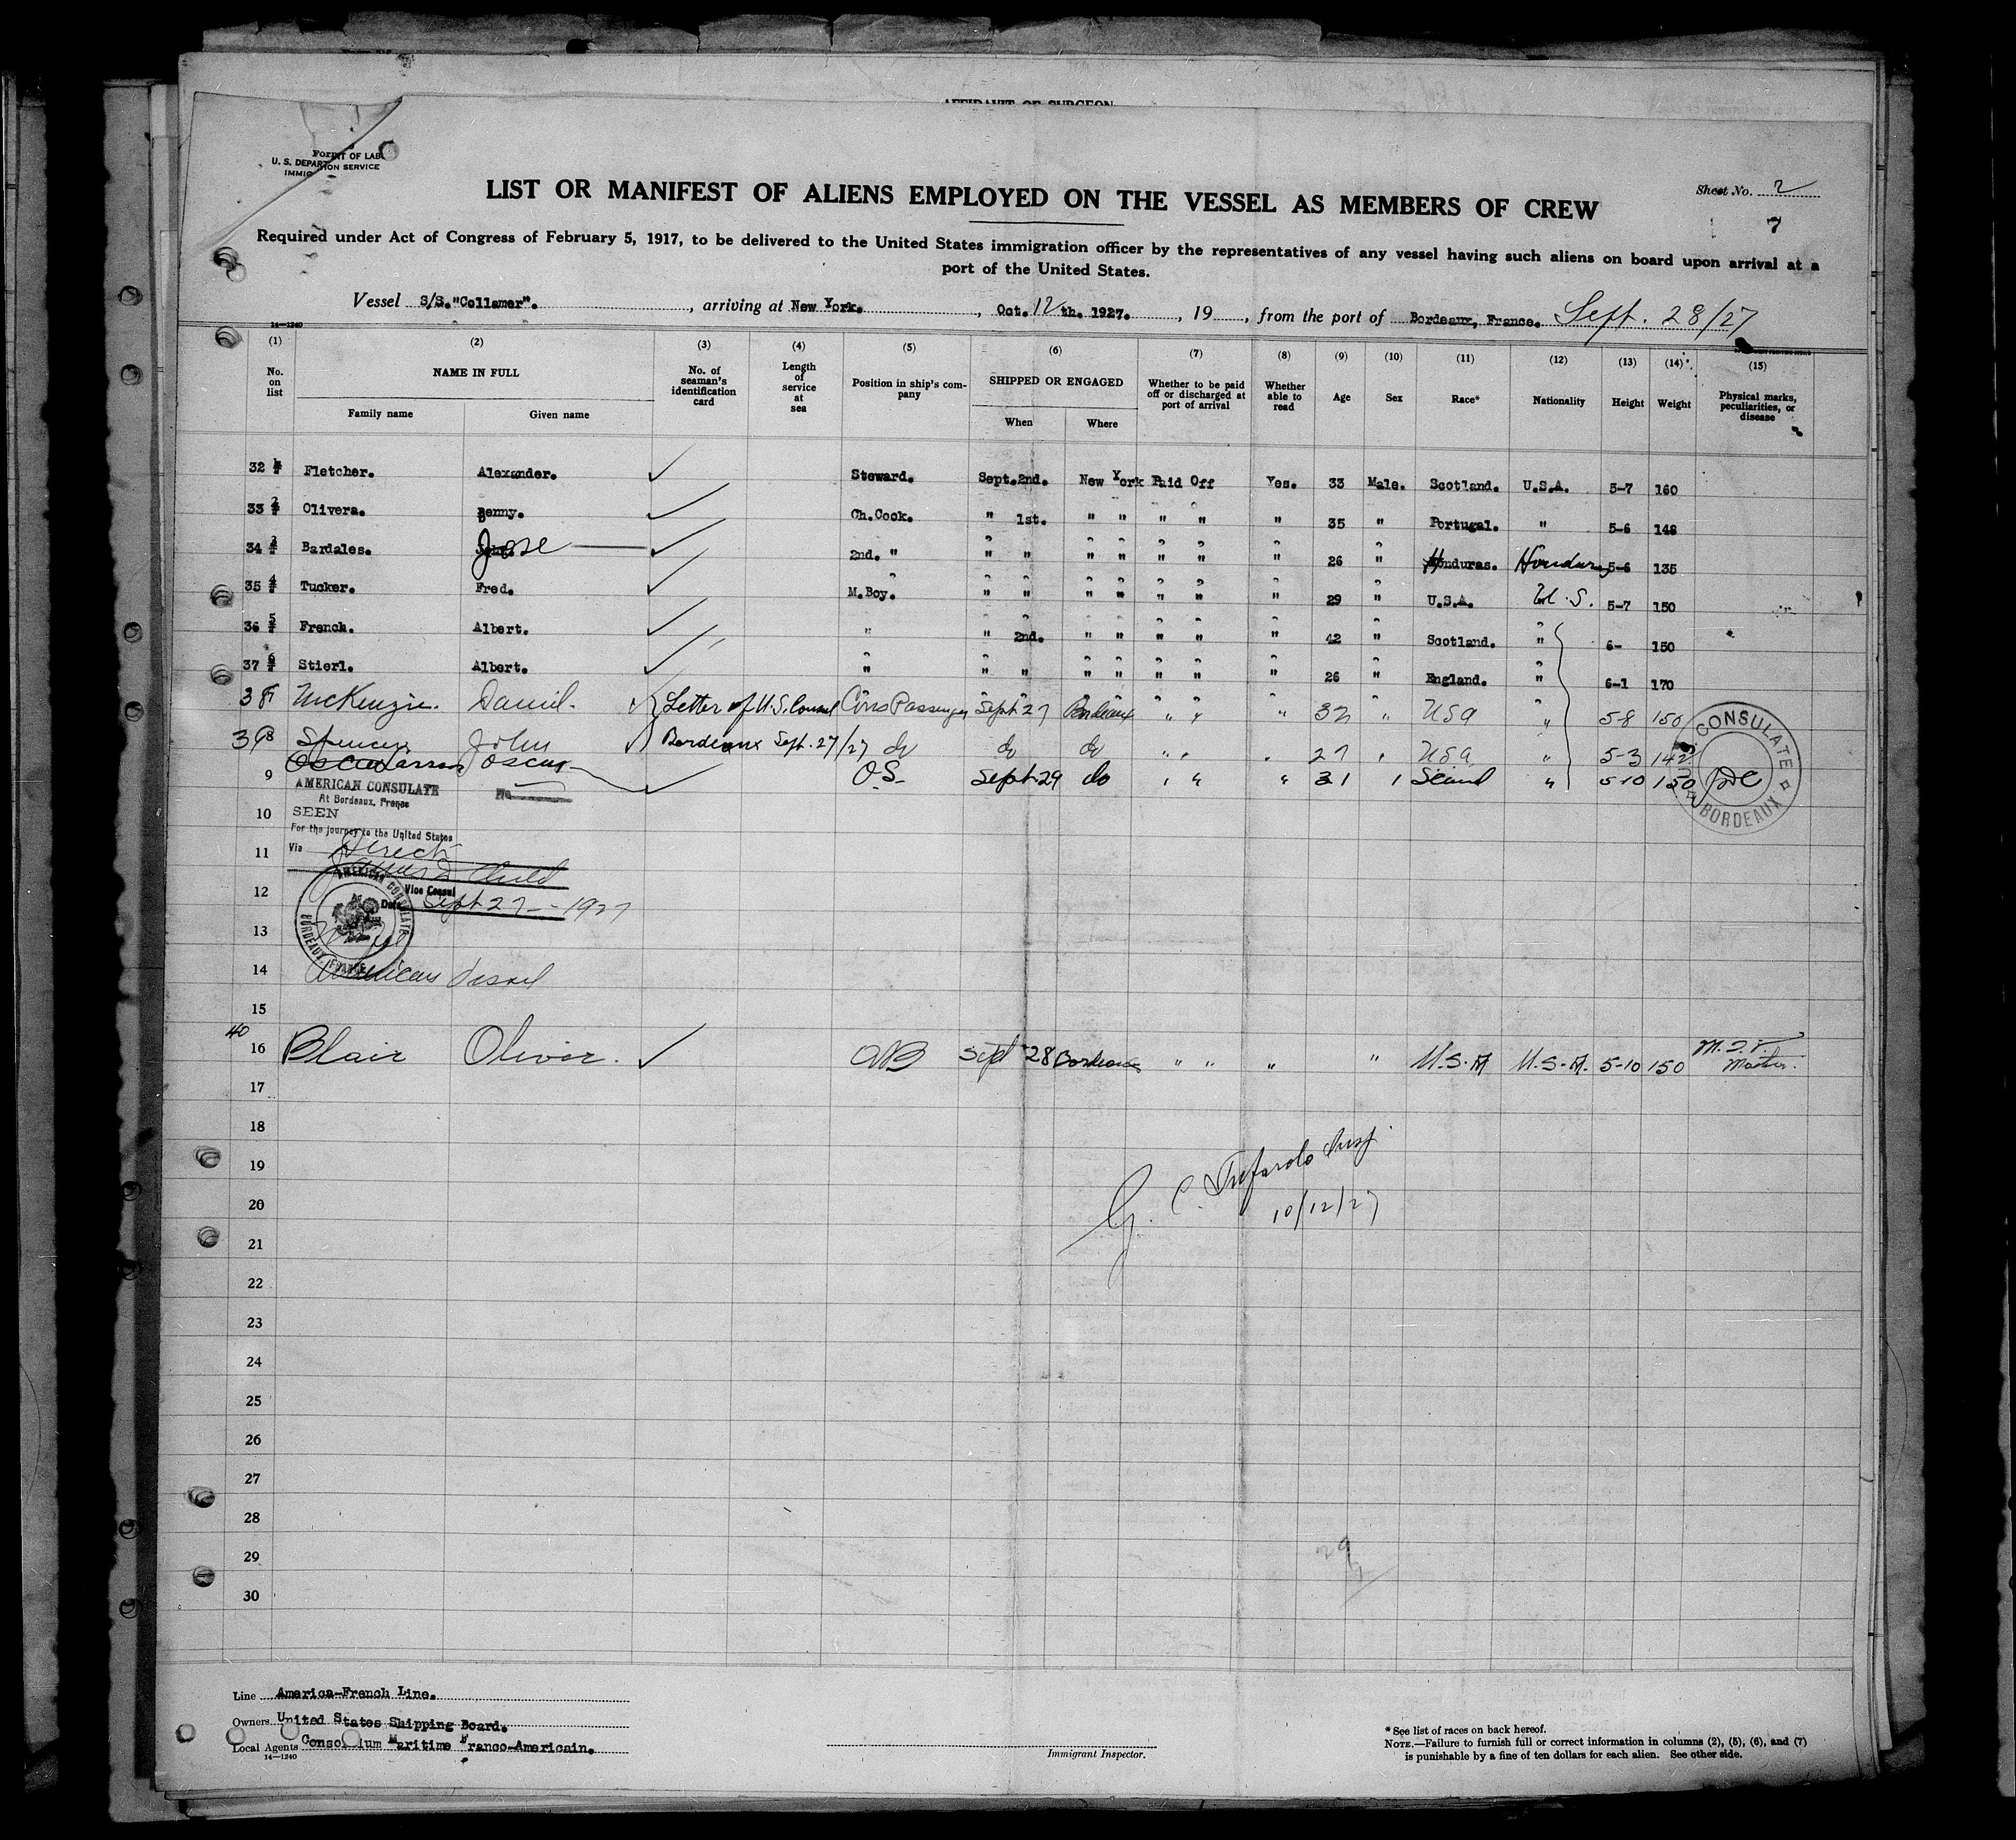 AFFIDAVIT OF SURGEON
Form
U. S. DEPARTMENT OF LABOR
IMMIGRATION SERVICE
LIST OR MANIFEST OF ALIENS EMPLOYED ON THE VESSEL AS MEMBERS OF CREW
Sheet No. 2
7
Required under Act of Congress of February 5, 1917, to be delivered to the United States immigration officer by the representatives of any vessel having such aliens on board upon arrival at a
port of the United States.
Vessel S/S."Collamer". , arriving at New York. , Oct. 12th. 1927. , 19 , from the port of Bordeaux, France. Sept. 28/27
14—1240
(1) (2) (3) (4) (5) (6) (7) (8) (9) (10) (11) (12) (13) (14) (15)
No. on list NAME IN FULL No. of seaman's identification card Length of service at sea Position in ship's company SHIPPED OR ENGAGED Whether to be paid off or discharged at port of arrival Whether able to read Age Sex Race* Nationality Height Weight Physical marks, peculiarities, or disease
Family name Given name When Where
32 1 Fletcher. Alexander. ✓ Steward. Sept.2nd. New York Paid Off Yes. 33 Male. Scotland. U.S.A. 5-7 160
33 2 Olivera. Benny. ✓ Ch.Cook. " 1st. " " " " " 35 " Portugal. " 5-6 148
34 3 Bardales. Jose ✓ 2nd. " " " " " " " " 26 " Honduras. Honduras 5-6 135
35 4 Tucker. Fred. ✓ M.Boy. " " " " " " " 29 " U.S.A. U.S. 5-7 150
36 5 French. Albert. ✓ " " 2nd. " " " " " 42 " Scotland. " 6- 150
37 6 Stierl. Albert. ✓ " " " " " " " " 26 " England. " 6-1 170
38 7 McKenzie. Daniel. ✓ Letter of U.S. Consul Cons Passenger Sept 27 Bordeaux " " " 32 " USA " 5-8 150
39 8 Spencer John ✓ Bordeaux Sept. 27/27 do do do " " " 27 " USA " 5-3 142
9 Larson Oscar ✓ O.S. Sept 29 do " " " 31 " Scand " 5-10 150
CONSULATE
BORDEAUX
AMERICAN CONSULATE
At Bordeaux, France
No.
10 SEEN
For the journey to the United States
11 Via Direct
12 Vice Consul
Date Sept 27 - 1927
AMERICAN CONSULATE
BORDEAUX, FRANCE
13
14 American Vessel
15
40
16 Blair Oliver. ✓ AB Sept 28 Bordeaux " " " " U.S.A. U.S.A. 5-10 150
Master.
17
18
19 G. C. Insp
20 10/12/27
21
22
23
24
25
26
27
28
29
30
Line America-French Line.
Owners United States Shipping Board.
Local Agents Consortium Maritime Franco-Americain.
14—1240
Immigrant Inspector.
*See list of races on back hereof.
NOTE.—Failure to furnish full or correct information in columns (2), (5), (6), and (7)
is punishable by a fine of ten dollars for each alien. See other side.